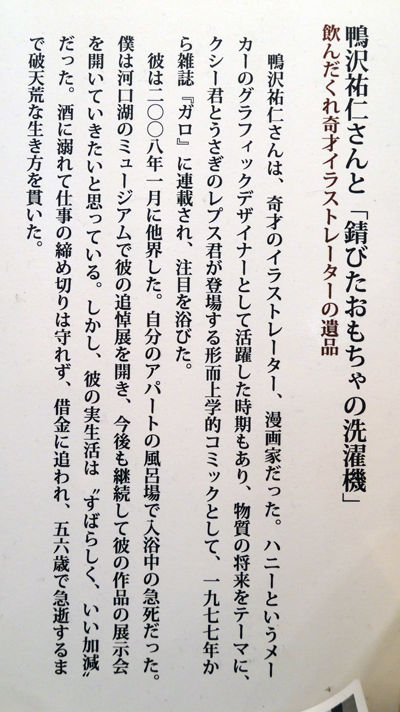 鴨沢祐仁さんと「錆びたおもちゃの洗濯機」
飲んだくれ奇才イラストレーターの遺品
鴨沢祐仁さんは、奇才のイラストレーター、漫画家だった。ハニーというメー
カーのグラフィックデザイナーとして活躍した時期もあり、物質の将来をテーマに、
クシー君とうさぎのレプス君が登場する形而上学的コミックとして、一九七七年か
ら雑誌『ガロ』に連載され、注目を浴びた。
彼は二〇〇八年一月に他界した。自分のアパートの風呂場で入浴中の急死だった。
僕は河口湖のミュージアムで彼の追悼展を開き、今後も継続して彼の作品の展示会
を開いていきたいと思っている。しかし、彼の実生活は〝すばらしく、いい加減〟
だった。酒に溺れて仕事の締め切りは守れず、借金に追われ、五六歳で急逝するま
で破天荒な生き方を貫いた。